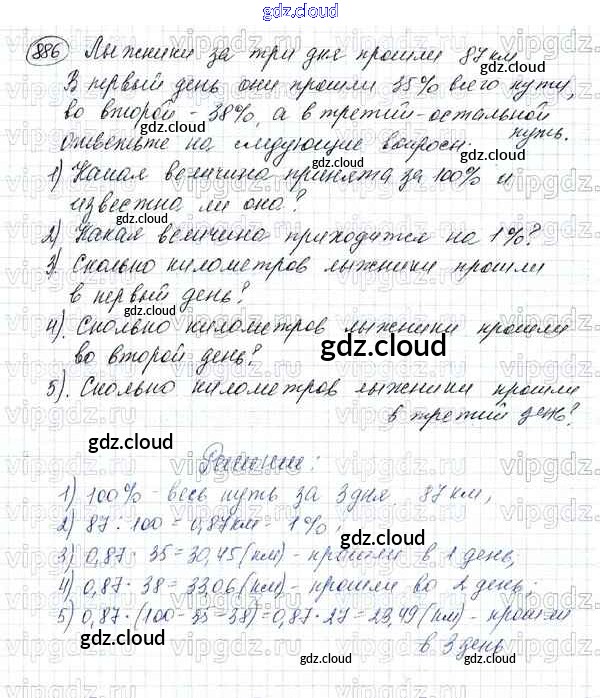 gdz.cloud
886 Лыжники за три дня прошли 87 км.
gdz.cloud
В первый день они прошли 35% всего пути,
во второй - 38%, а в третий - остальной
путь.
gdz.cloud gdz.cloud
ответьте на следующие вопросы:
1) Какая величина принята за 100% и
gdz.cloud
известна ли она?
gdz.cloud
2) Какая величина приходится на 1%?
3) Сколько километров лыжники прошли
в первый день?
gdz.cloud
4). Сколько километров лыжники прошли
во второй день?
gdz.cloud
5). Сколько километров лыжники прошли
в третий день?
gdz.cloud
Решение:
1) 100% - весь путь за 3 дня 87 км,
gdz.cloud
2) 87 : 100 = 0,87 км - 1%;
gdz.cloud
3) 0,87 · 35 = 30,45 (км) - прошли в 1 день,
4) 0,87 · 38 = 33,06 (км) - прошли во 2 день;
gdz.cloud
5) 0,87 · (100 - 35 - 38) = 0,87 · 27 = 23,49 (км) - прошли
gdz.cloud gdz.cloud
в 3 день
gdz.cloud gdz.cloud